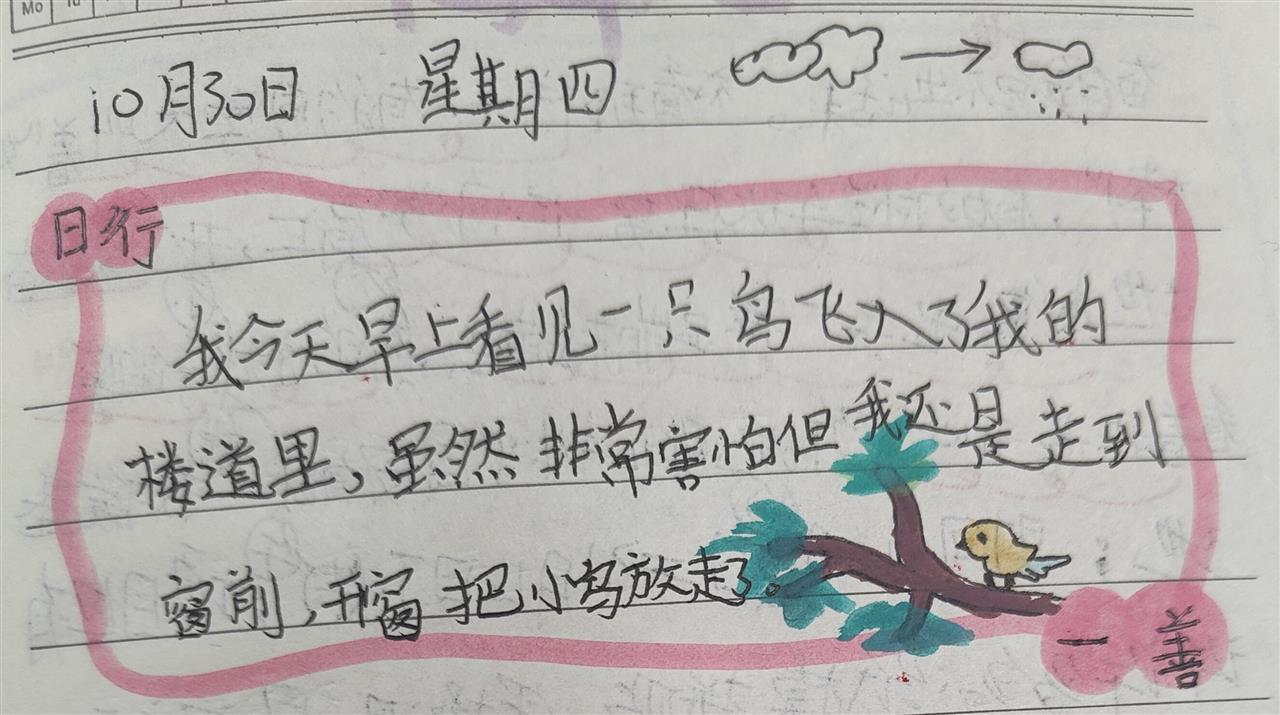 Mo Tu
10月30日 星期四
日行
我今天早上看见一只鸟飞入了我的
楼道里，虽然非常害怕但我还是走到
窗前，开窗把小鸟放走了。
一善